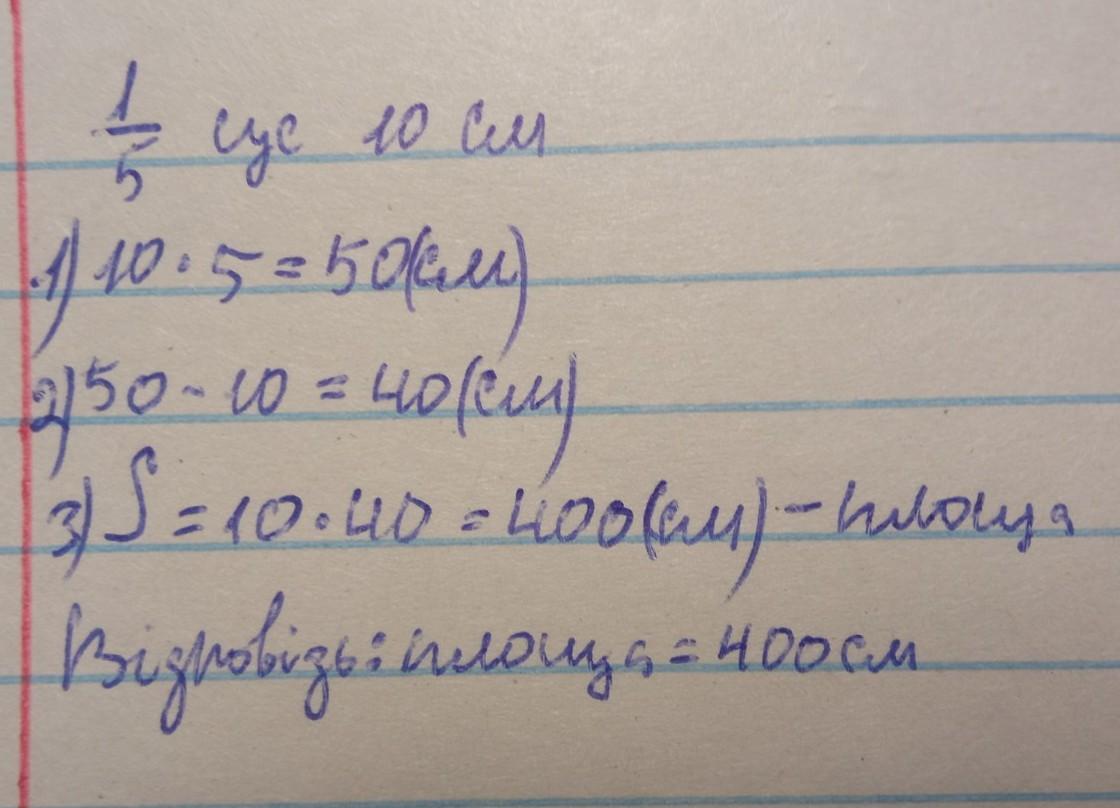 1/5 сус 10 см
1) 10 · 5 = 50(см)
2) 50 - 10 = 40(см)
3) S = 10 · 40 = 400(см) - площа
Відповідь: площа = 400 см